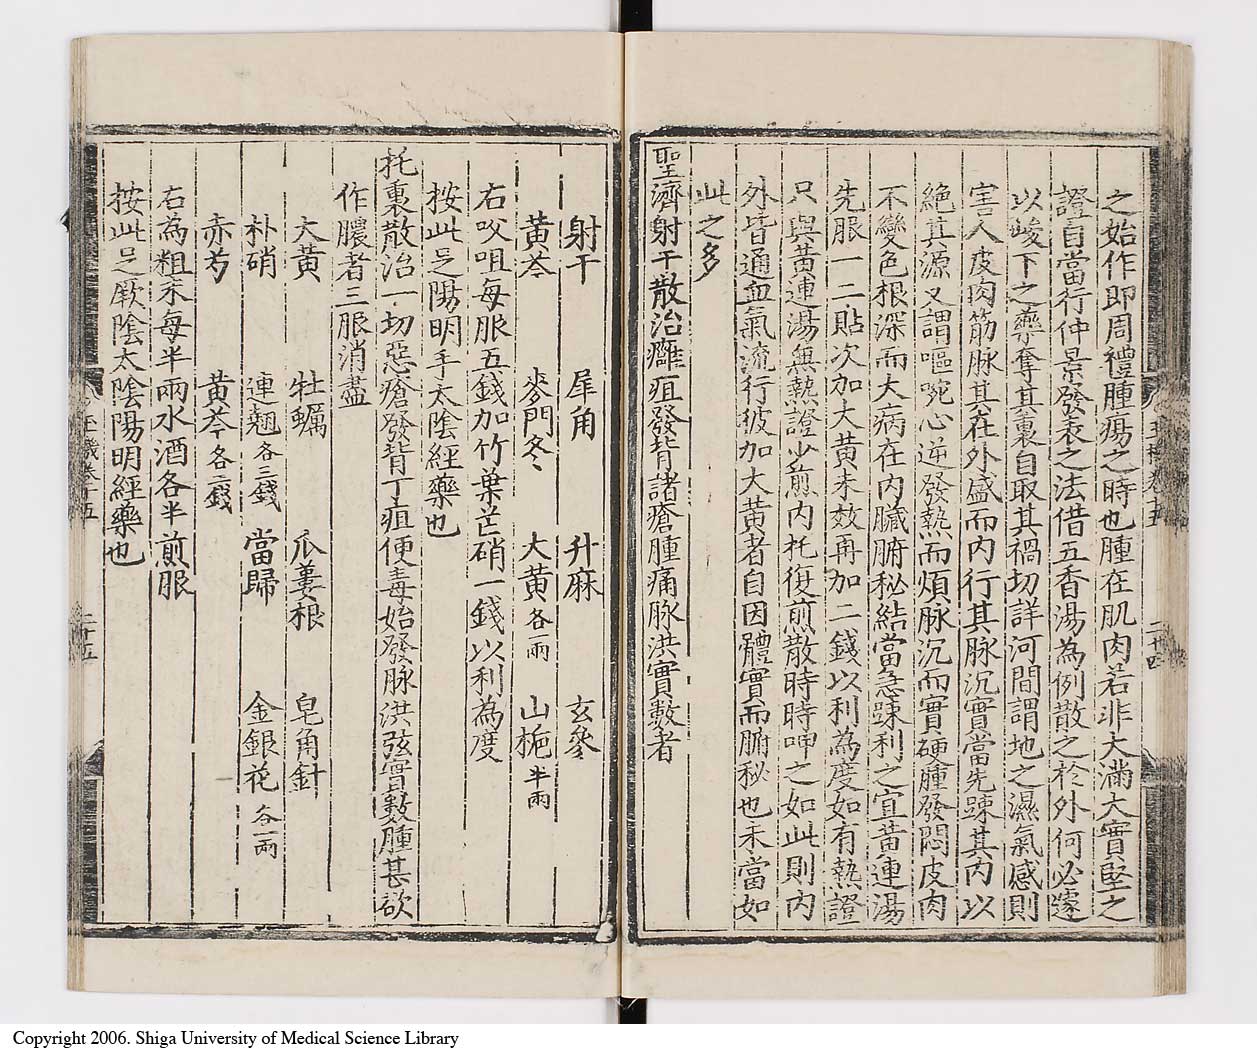 之始作即周禮腫瘍之時也腫在肌肉若非大滿大實堅之
證自當行仲景發表之法借五香湯為例散之於外何必遽
以峻下之藥奪其裏自取其禍切詳河間謂地之濕氣感則
害人皮肉筋脉其在外盛而內行其脉沉實當先踈其內以
絕其源又謂嘔啘心逆發熱而煩脉沉而實硬腫發悶皮肉
不變色根深而大病在內臟腑秘結當急踈利之宜黃連湯
先服一二貼次加大黃未效再加二錢以利為度如有熱證
只與黃連湯無熱證少煎內托復煎散時時呷之如此則內
外皆通血氣流行彼加大黃者自因體實而腑秘也未當如
此之多
聖濟射干散治癰疽發背諸瘡腫痛脉洪實數者
射干 犀角 升麻 玄參
黃芩 麥門冬 大黃各一兩 山梔半兩
右㕮咀每服五錢加竹葉芒硝一錢以利為度
按此足陽明手太陰經藥也
托裏散治一切惡瘡發背丁疽便毒始發脉洪弦實數腫甚欲
作膿者三服消盡
大黃 牡蠣 瓜蔞根 皂角針
朴硝 連翹各三錢 當歸 金銀花各一兩
赤芍 黃芩各二錢
右為粗末每半兩水酒各半煎服
按此足厥陰太陰陽明經藥也
玉機卷十五 二十五
二十四
Copyright 2006. Shiga University of Medical Science Library